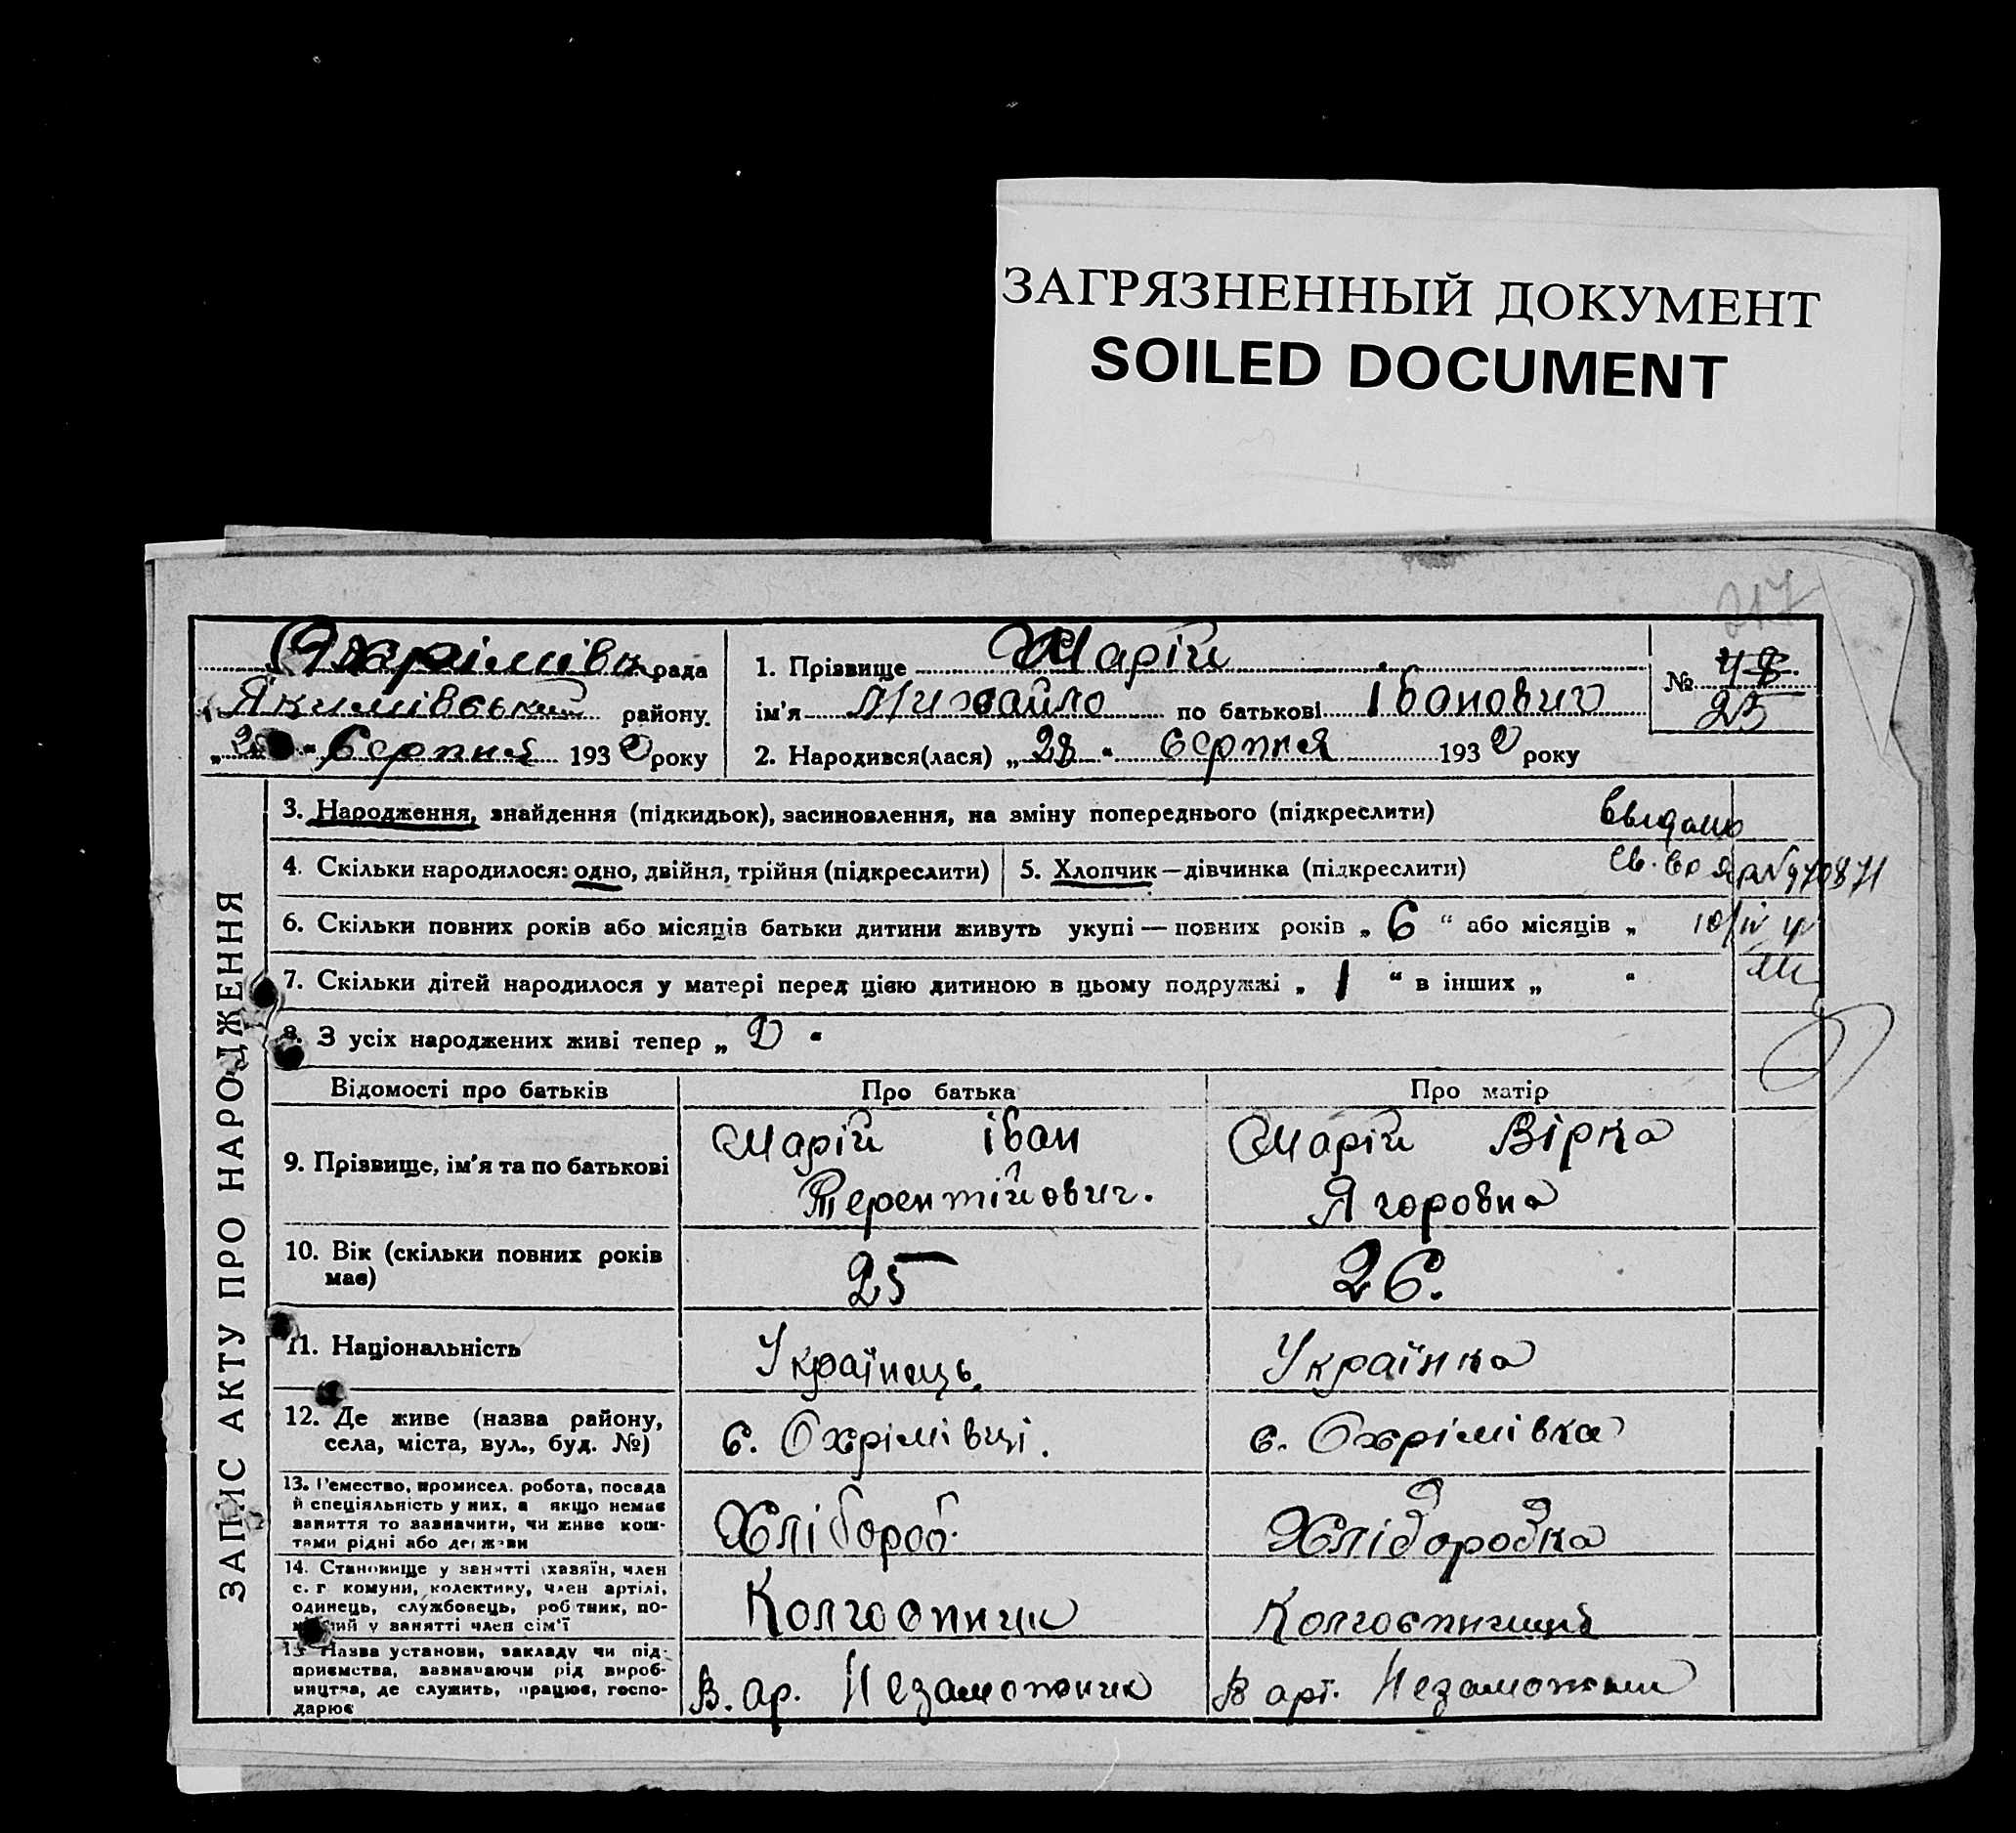 ЗАГРЯЗНЕННЫЙ ДОКУМЕНТ
SOILED DOCUMENT
217
Охрімівк. рада
Якимівський району.
" Серпня 1932 року
1. Прізвище Марій
ім'я Михайло по батькові Іванович
2. Народився(лася) „28" серпня 1932 року
№ 48
25
ЗАПИС АКТУ ПРО НАРОДЖЕННЯ
3. Народження, знайдення (підкидьок), засиновлення, на зміну попереднього (підкреслити)
Выдано
4. Скільки народилося: одно, двійня, трійня (підкреслити) 5. Хлопчик—дівчинка (підкреслити)
св.
6. Скільки повних років або місяців батьки дитини живуть укупі — повних років „ 6 “ або місяців „
7. Скільки дітей народилося у матері перед цією дитиною в цьому подружжі „ 1 “ в інших „ “
8. З усіх народжених живі тепер „ 2 “
Відомості про батьків Про батька Про матір
9. Прізвище, ім'я та по батькові
Марій Іван
Терентійович.
Марій Вірка
Ягоровна
10. Вік (скільки повних років
має)
25
26.
11. Національність
Українець.
Українка
12. Де живе (назва району,
села, міста, вул., буд. №)
с. Охрімівці.
с. Охрімівка
13. Ремество, промисел. робота, посада
й спеціяльність у них, а якщо немає
заняття то зазначити, чи живе кош-
тами рідні або держави
Хлібороб.
Хліборобка
14. Становище у занятті (хазяїн, член
с. г комуни, колективу, член артілі,
одинець, службовець, робітник, по-
у занятті член сім'ї
Колгоспник
Колгоспниця
15 Назва установи, закладу чи під-
приємства, зазначаючи рід вироб-
ництва, де служить, працює, госпо-
дарює
В. ар. Незаможник
В арт. Незаможник